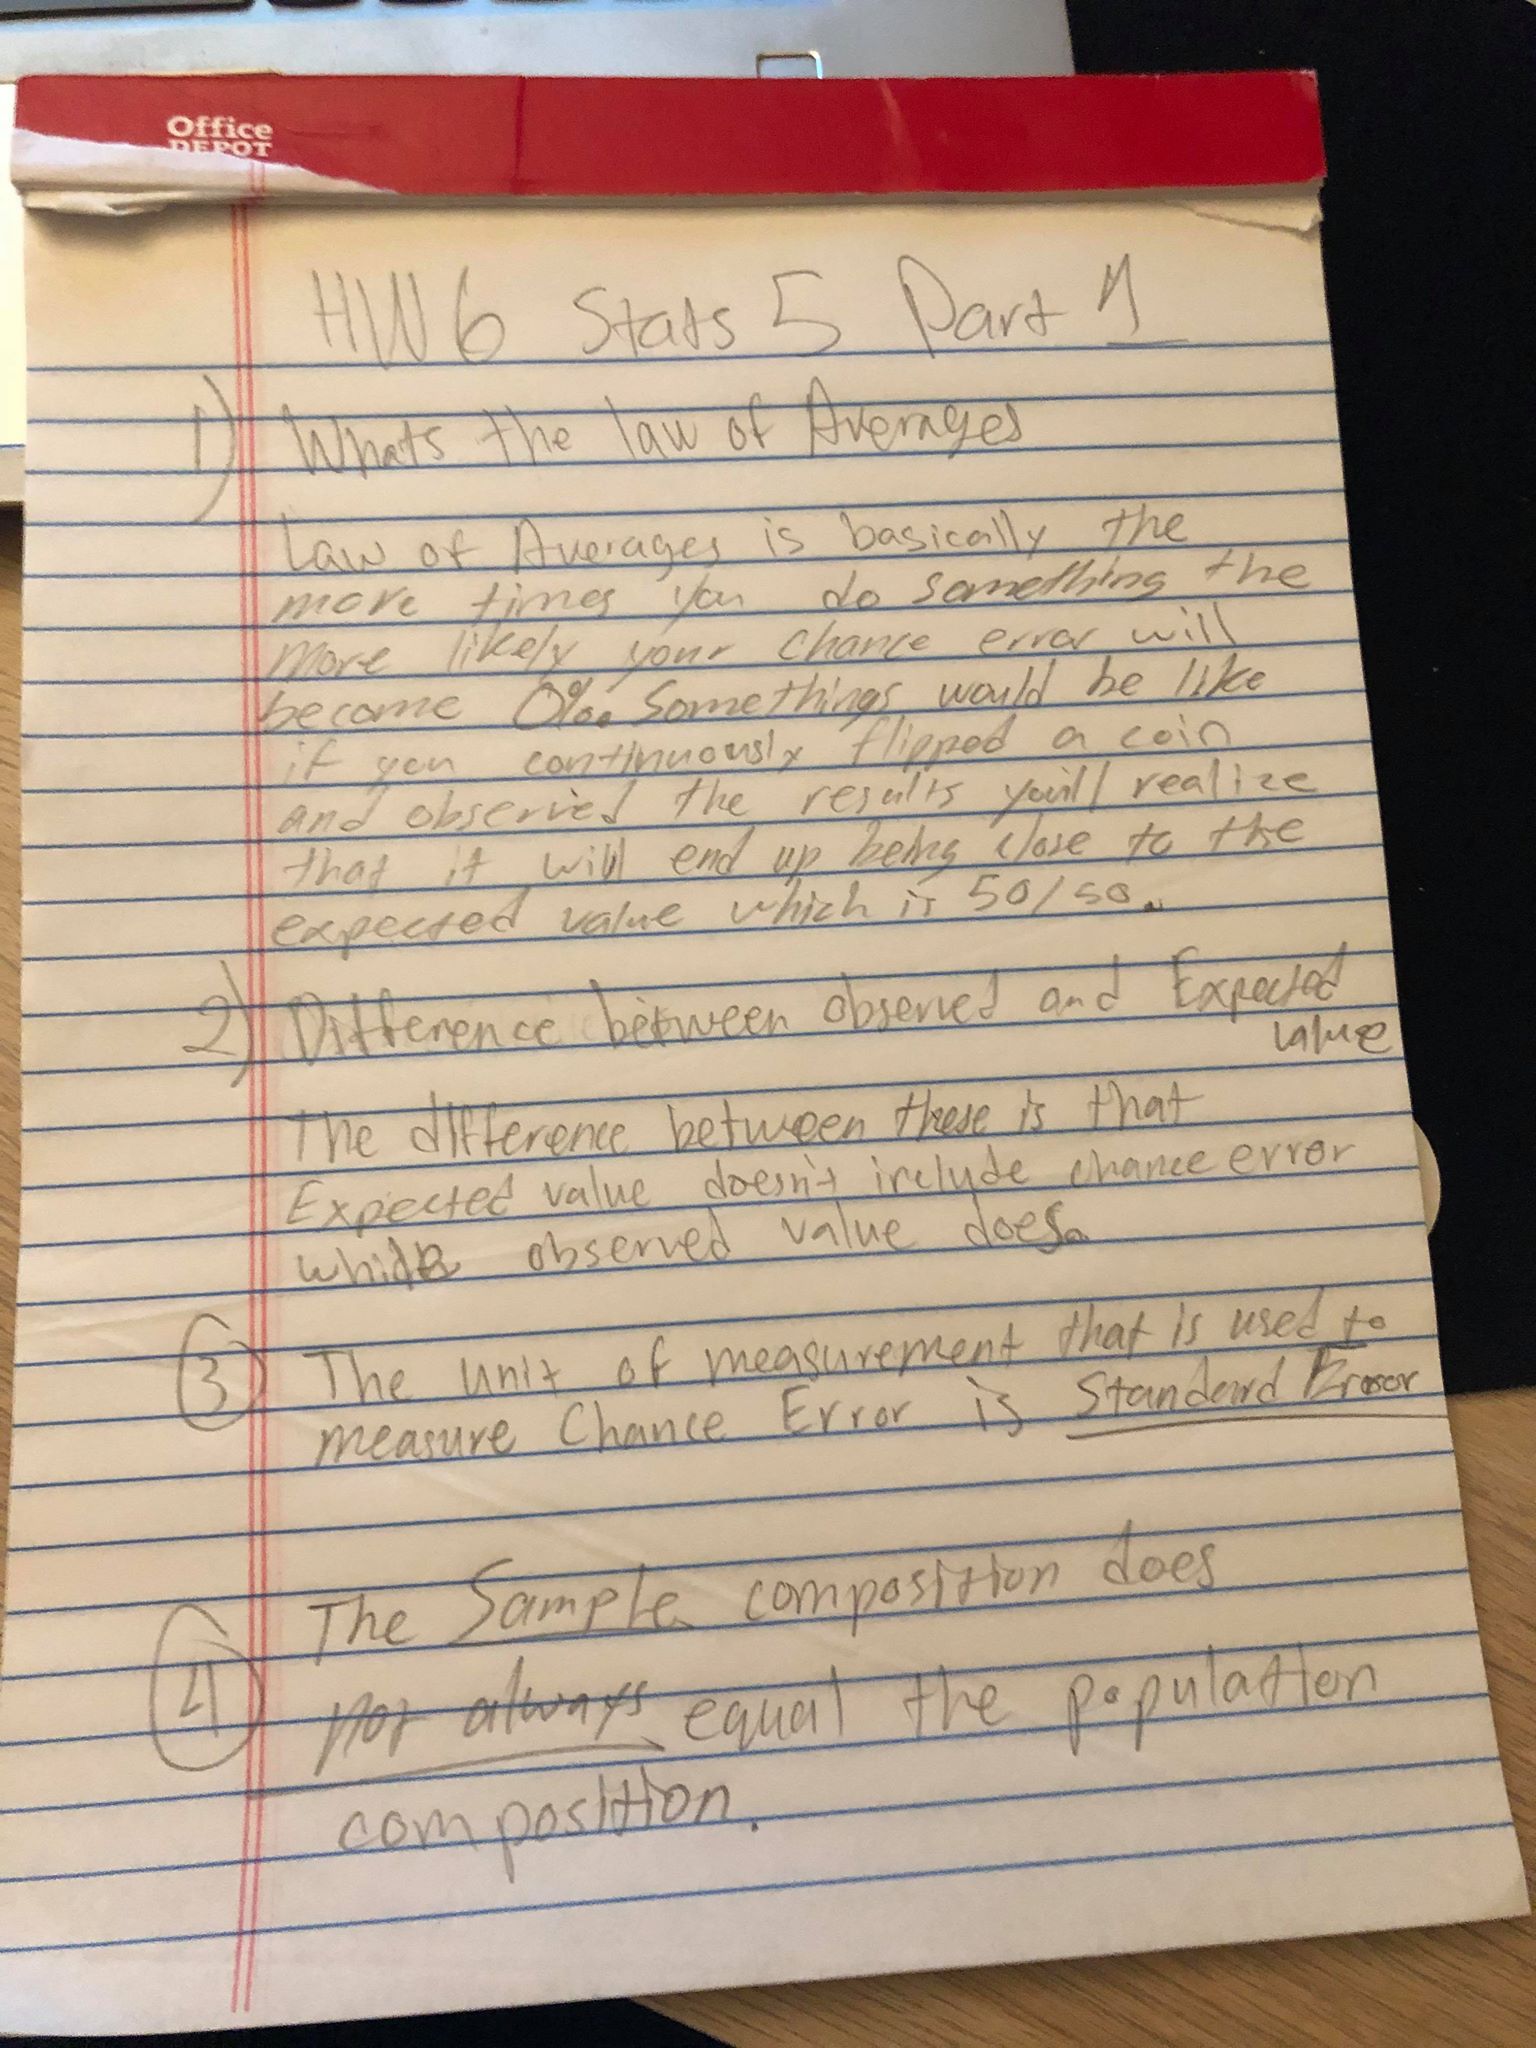 Office
DEPOT
HW6 Stats 5 Part 1
1) Whats the law of Averages
Law of Averages is basically the
more times you do something the
more likely your chance error will
become 0%. Somethings would be like
if you continuously flipped a coin
and observed the results you'll realize
that it will end up being close to the
expected value which is 50/50.
2) Difference between observed and Expected
value
The difference between these is that
Expected value doesn't include chance error
while observed value does.
3) The unit of measurement that is used to
measure Chance Error is Standard Error
4) The Sample composition does
not always equal the population
composition.